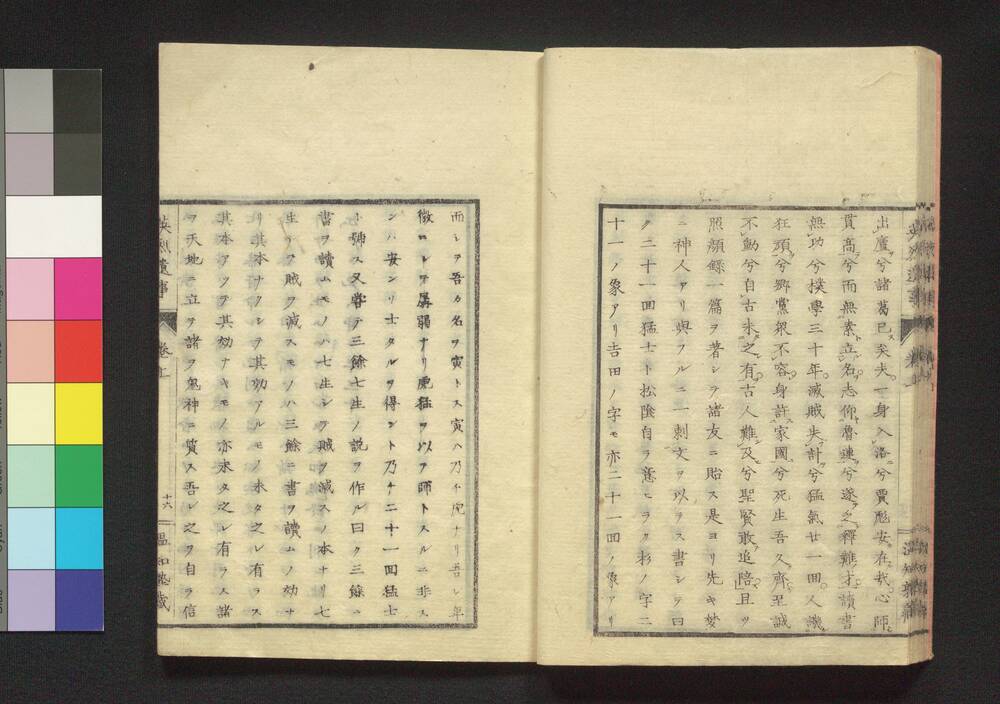 出廬兮諸葛已矣夫一身入洛兮賈彪安在哉心師
貫高兮而無素立名志仰魯連兮遂之釋難才讀書
無功兮撲學三十年滅賊失計兮猛氣廿一回人譏
狂頑兮鄉黨衆不容身許家國兮死生吾久齊至誠
不動兮自古未之有古人難及兮聖賢敢追陪且ツ
照顏錄一篇ヲ著シテ諸友ニ貽ス是ヨリ先キ夢
ニ神人アリ與フルニ一刺文ヲ以テス書シテ曰
ク二十一回猛士ト松陰自ラ意ヒラク杉ノ字ニ
十一ノ象アリ吉田ノ字モ亦二十一回ノ象アリ
而シテ吾カ名ヲ寅トス寅ハ乃チ虎ナリ吾レ年
微ニシテ孱弱ナリ虎猛ヲ以テ師トスルニ非ス
ンハ安ンソ士タルヲ得ント乃チ二十一回猛士
ト號ス又嘗テ三餘七生ノ説ヲ作ル曰ク三餘ニ
書ヲ讀ムモノハ七生シテ賊ヲ滅スノ本ナリ七
生シテ賊ヲ滅スモノハ三餘ニ書ヲ讀ムノ効ナ
リ其本ナクシテ其効アルモノ未タ之レ有ラス
其本アツテ其効ナキモノ亦未タ之レ有ラス諸
ヲ天地ニ立テ諸ヲ鬼神ニ質ス吾レ之ヲ自ラ信
英烈遺事
卷上
十六